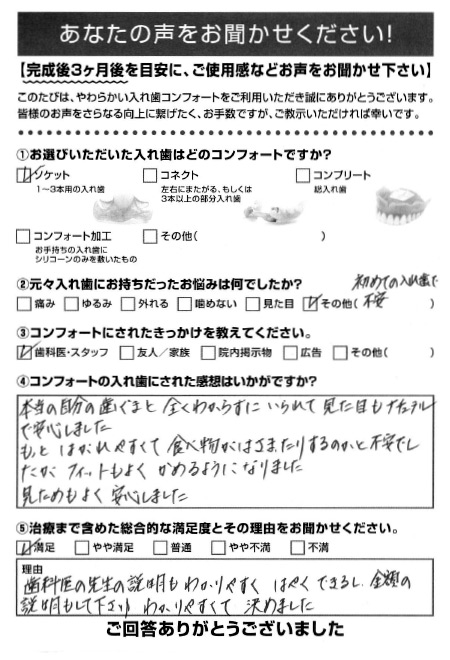 あなたの声をお聞かせください!
【完成後3ヶ月後を目安に、ご使用感などお声をお聞かせ下さい】
このたびは、やわらかい入れ歯コンフォートをご利用いただき誠にありがとうございます。
皆様のお声をさらなる向上に繋げたく、お手数ですが、ご教示いただければ幸いです。
①お選びいただいた入れ歯はどのコンフォートですか?
ソケット
1〜3本用の入れ歯
コネクト
左右にまたがる、もしくは
3本以上の部分入れ歯
コンプリート
総入れ歯
コンフォート加工
お手持ちの入れ歯に
シリコーンのみを敷いたもの
その他( )
②元々入れ歯にお持ちだったお悩みは何でしたか?
初めての入れ歯で
痛み ゆるみ 外れる 噛めない 見た目 その他( 不安 )
③コンフォートにされたきっかけを教えてください。
歯科医・スタッフ 友人/家族 院内掲示物 広告 その他( )
④コンフォートの入れ歯にされた感想はいかがですか?
本当の自分の歯ぐきと全くわからずにいられて見た目もナチュラル
で安心しました
もっとはがれやすくて食べ物がはさまったりするのかと不安でし
たが フィットもよく かめるようになりました
見ためもよく 安心しました
⑤治療まで含めた総合的な満足度とその理由をお聞かせください。
満足 やや満足 普通 やや不満 不満
理由
歯科医の先生の説明もわかりやすく はやくできるし 金額の
説明もして下さり わかりやすくて 決めました
ご回答ありがとうございました